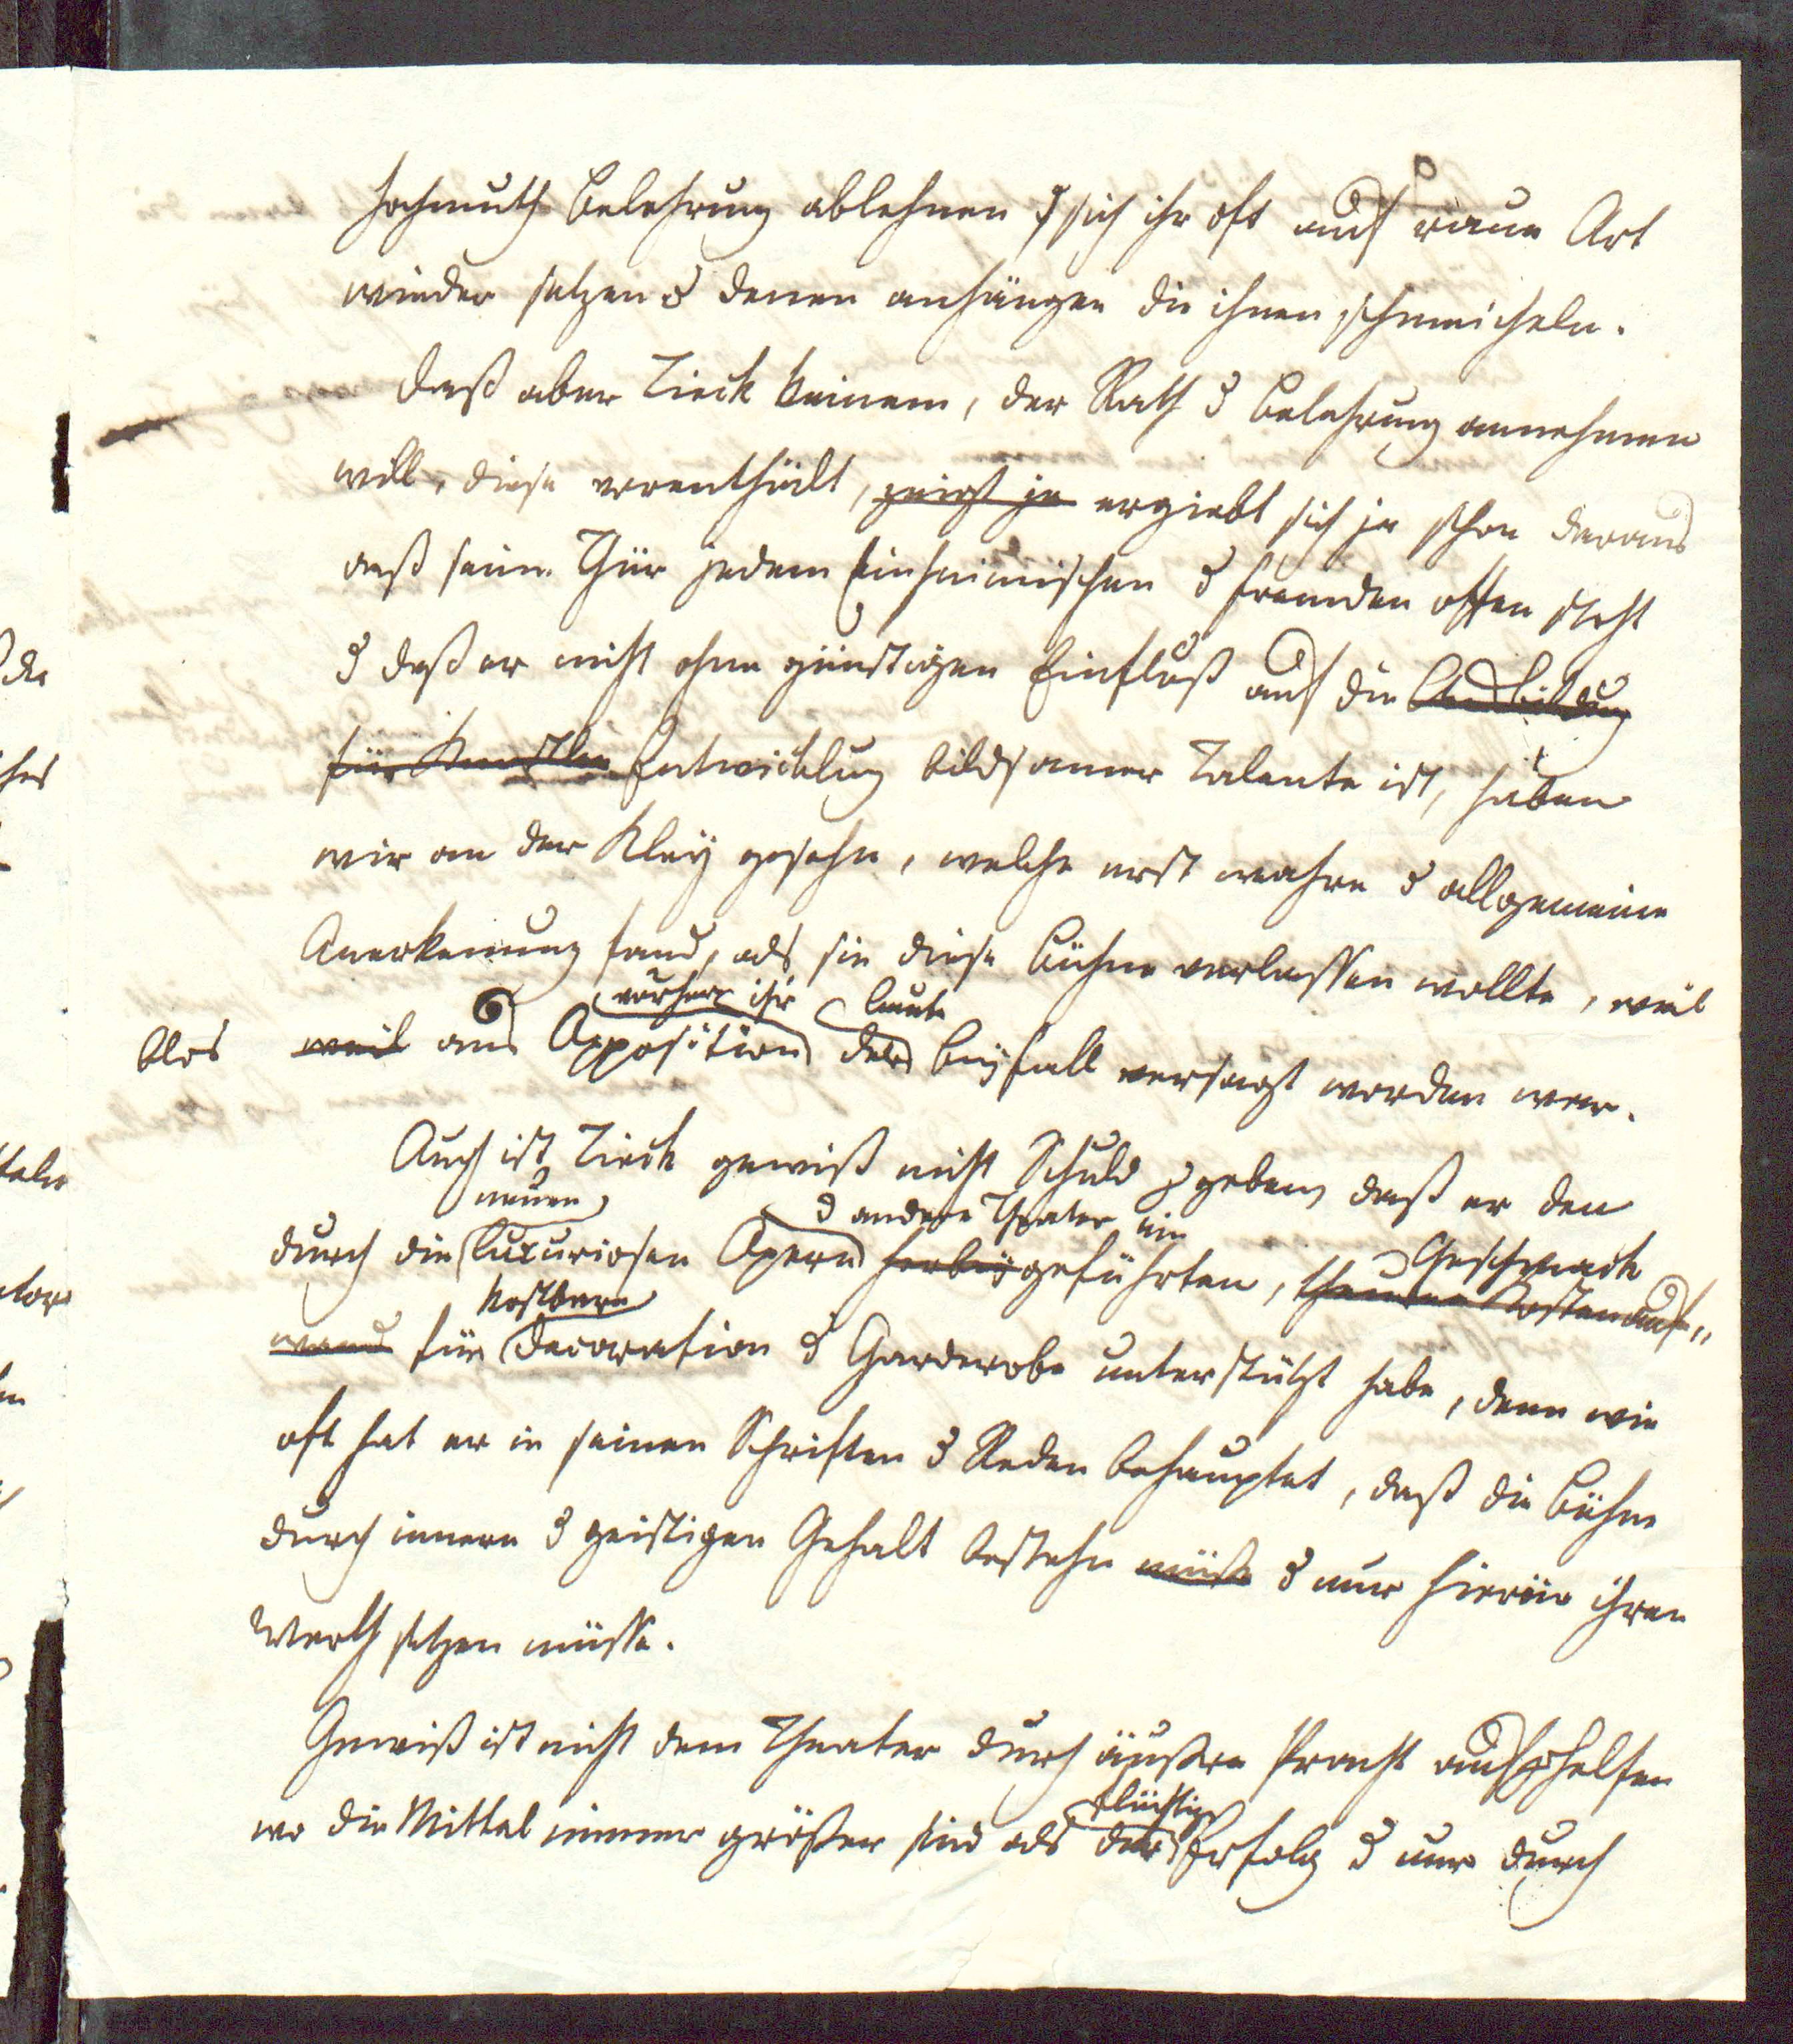 Hochmuth Belehrung ablehnen & sich ihr oft auf raue Art
wieder setzen & denen anhängen die ihnen schmeicheln.
Daß aber Tieck keinem, der Rath & Belehrung annehmen
will, diese vorenthält, zeigt ja ergiebt sich ja schon daraus
daß seine Thür jedem Einheimischen & Fremden offen steht
& daß er nicht ohne günstigen Einfluß auf die Ausbildung
für Künstler Entwicklung bildsamer Talente ist, haben
wir an der Kley gesehn, welche erst wahre & allgemeine
Anerkennung fand, als sie diese Bühne verlassen wollte, weil
vorher ihr laute
blos weil aus Opposition der Beyfall versagt worden war.
Auch ist Tieck gewiß nicht Schuld z geben, daß er den
neuen & andere Theater ein
durch die luxuriosen Opern herbeygeführten, theuren Kostenauf-
Geschmack
kostbare
wand für Decoration & Garderobe unterstützt habe, denn wie
oft hat er in seinen Schriften & Reden behauptet, daß die Bühne
durch innern & geistigen Gehalt bestehn müße & nur hierin ihren
Werth setzen müsse.
Gewiß ist nicht dem Theater durch äußere Pracht aufzhelfen
flüchtige
wo die Mittel immer größer sind als der Erfolg & nur durch